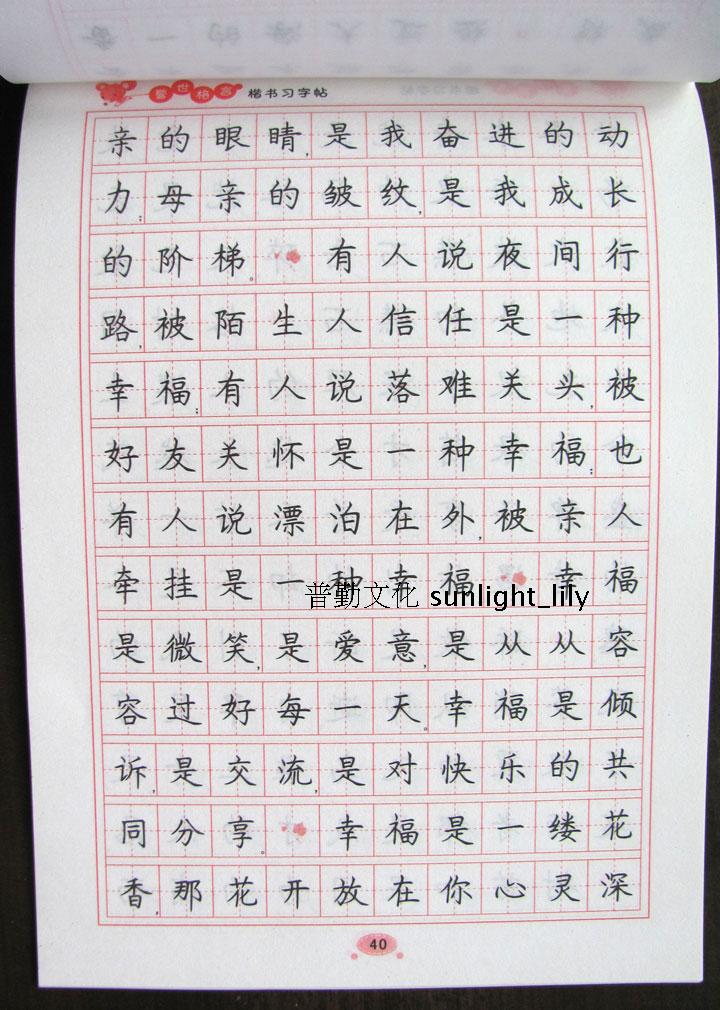 警世格言 楷书习字帖
亲的眼睛,是我奋进的动
力;母亲的皱纹,是我成长
的阶梯。 有人说夜间行
路,被陌生人信任是一种
幸福;有人说落难关头,被
好友关怀是一种幸福;也
有人说漂泊在外,被亲人
牵挂是一种幸福 幸福
是微笑,是爱意,是从从容
容过好每一天。幸福是倾
诉,是交流,是对快乐的共
同分享。 幸福是一缕花
香,那花开放在你心灵深
普勤文化 sunlight_lily
40